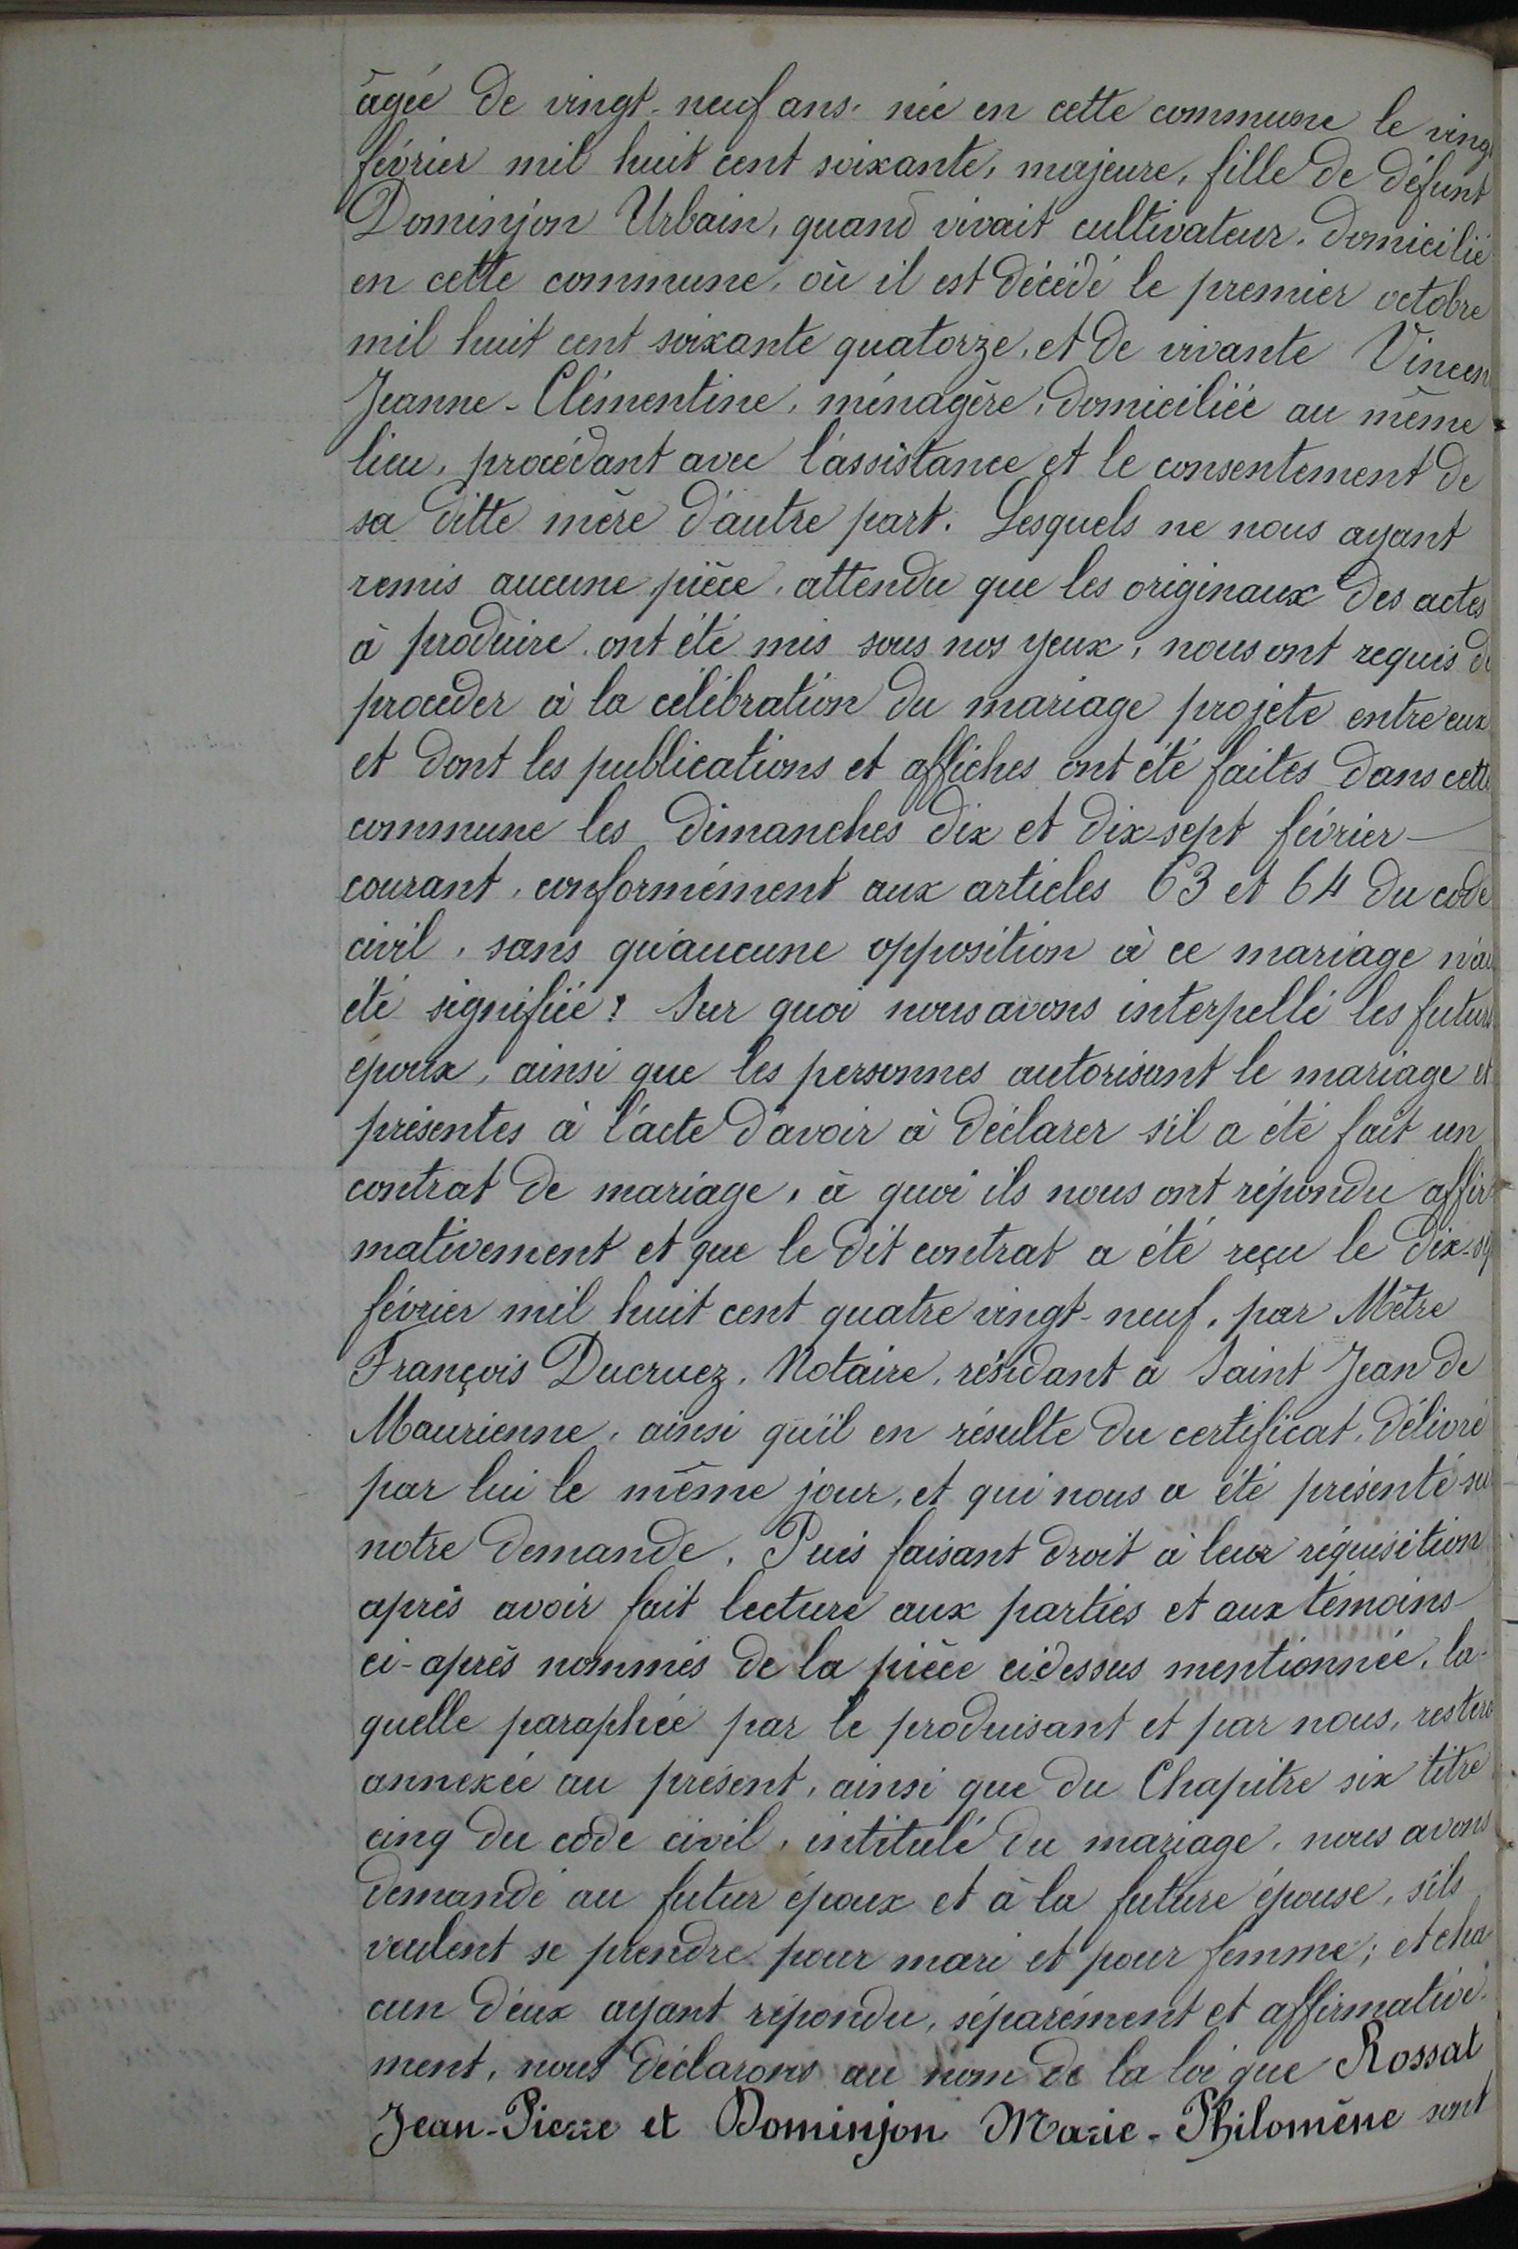 âgée de vingt-neuf ans. née en cette commune le ving
février mil huit cent soixante, majeure, fille de défunt
Dominjon Urbain, quand vivait cultivateur, domicilié
en cette commune, où il est décédé le premier octobre
mil huit cent soixante quatorze, et de vivante Vincen
Jeanne-Clémentine, ménagère, domiciliée au même
lieu, procédant avec l'assistance et le consentement de
sa ditte mère d'autre part. Lesquels ne nous ayant
remis aucune pièce, attendu que les originaux des actes
à produire ont été mis sous nos yeux, nous ont requis de
procéder à la célébration du mariage projeté entre eux
et dont les publications et affiches ont été faites dans cette
commune les dimanches dix et dix-sept février
courant, conformément aux articles 63 et 64 du code
civil, sans qu'aucune opposition à ce mariage n'ai
été signifiée; Sur quoi nous avons interpellé les futurs
époux, ainsi que les personnes autorisant le mariage et
présentes à l'acte d'avoir à déclarer s'il a été fait un
contrat de mariage, à quoi ils nous ont répondu affir
mativement et que le dit contrat a été reçu le dix-se
février mil huit cent quatre vingt-neuf, par Mêtre
François Ducruez, Notaire, résidant à Saint Jean de
Maurienne, ainsi qu'il en résulte du certificat, délivré
par lui le même jour, et qui nous a été présenté su
notre demande. Puis faisant droit à leur réquisition
après avoir fait lecture aux parties et aux témoins
ci-après nommés de la pièce cidessus mentionnée, la-
quelle paraphée par le produisant et par nous, restera
annexée au présent, ainsi que du Chapitre six titre
cinq du code civil, intitulé du mariage, nous avons
demandé au futur époux et à la future épouse, s'ils
veulent se prendre pour mari et pour femme; et cha
cun d'eux ayant répondu, séparément et affirmative-
ment, nous déclarons au nom de la loi que Rossat
Jean-Pierre et Dominjon Marie-Philomène sont